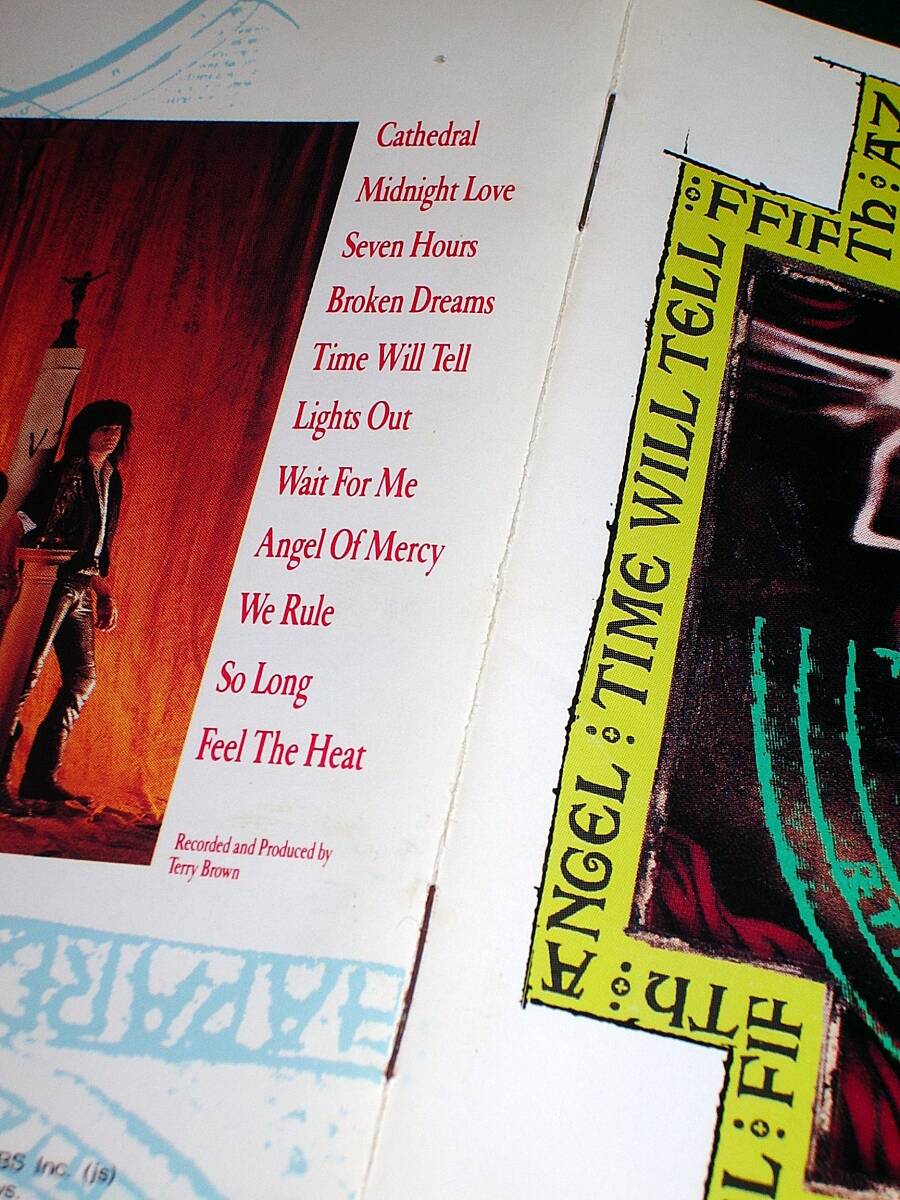 Cathedral
Midnight Love
Seven Hours
Broken Dreams
Time Will Tell
Lights Out
Wait For Me
Angel Of Mercy
We Rule
So Long
Feel The Heat
Recorded and Produced by
Terry Brown
Inc. (js)
FIFTH ANGEL : TIME WILL TELL : FFIFTh : AN
L : FIF